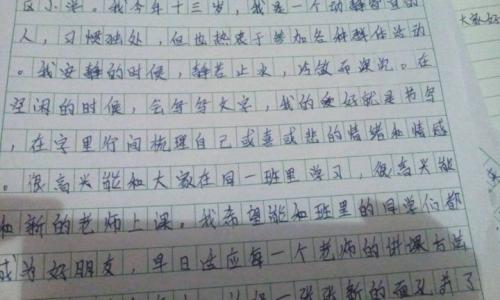 我今年十三岁，我是一个动静皆宜的
大家好
人，习惯独处，但也热衷于参加各种群体活动
。我安静的时候，静若止水，内敛而深沉。在
空闲的时候，会写写文字，我的爱好就是书写
，在字里行间梳理自己或喜或悲的情绪和情感
。很高兴能和大家在同一班里学习，很高兴能
和新的老师上课。我希望能和班里的同学们都
成为好朋友，早日适应每一个老师的讲课方法
张张新的面孔